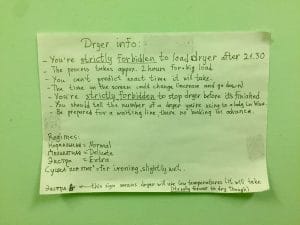 Dryer info:
- You're strictly forbidden to load dryer after 21.30
- The process takes approx. 2 hours for 4kg load
- You can't predict exact time it will take.
- The time on the screen could change (increase and go down)
- You're strictly forbidden to stop dryer before its finished
- You should tell the number of a dryer you're using to a lady in blue
- Be prepared for a waiting line, there no booking in advance.
Regimes:
= Normal
= Delicate
Экстра = Extra
= for ironing, slightly wet.
Экстра - this sign means dryer will use low temperatures (it will take
longer to dry though)